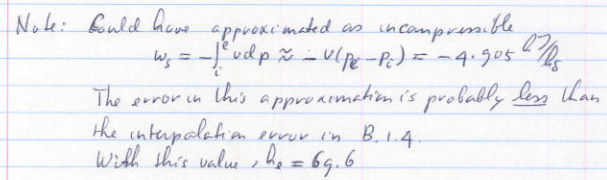 Note: Could have approximated as incompressible
w_s = -∫_i^e v dp ≈ -v(p_e - p_i) = -4.905 kJ/kg
The error in this approximation is probably less than
the interpolation error in B.1.4.
With this value, h_e = 69.6